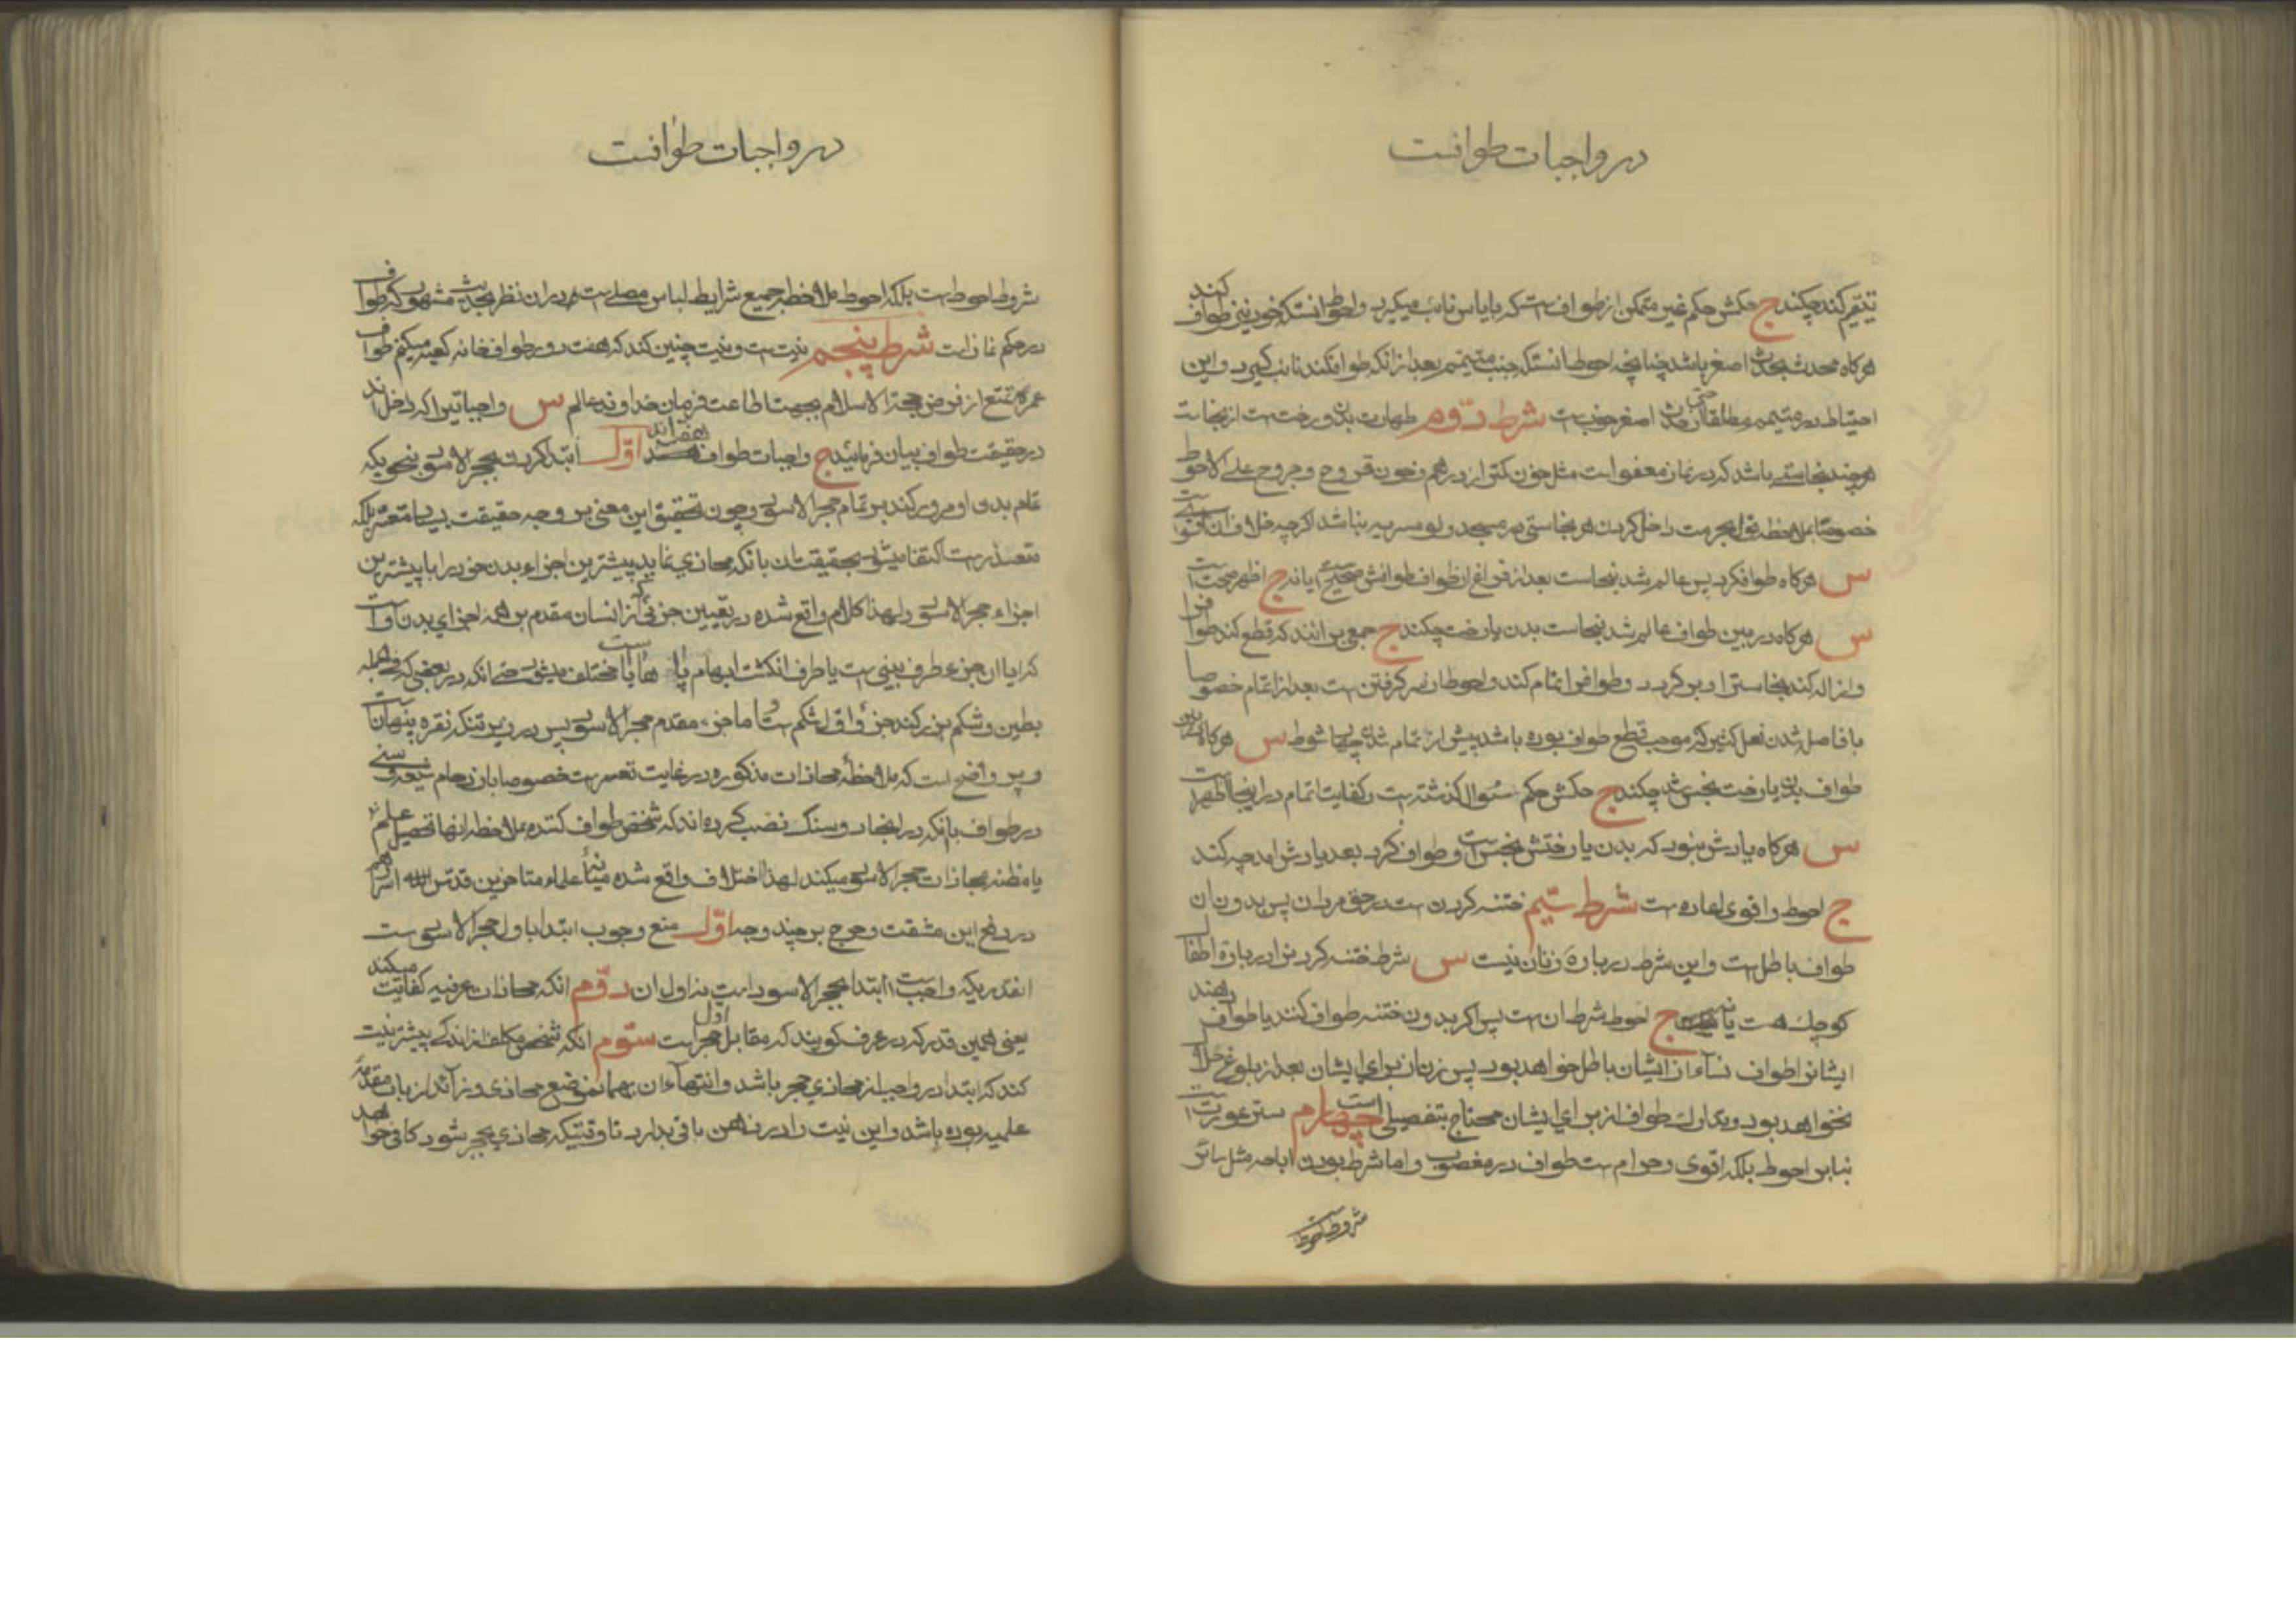 در واجبات طوافست
تیمّم کند چکند ج حکمش حکم غیر متمکن از طوافست که با یاس نایب میگیرد و احوط انستکه خود نیز طواف کند
هرکاه محدث بحدث اصغر باشد چنانچه احوط انستکه جنب متیمّم بعد از انکه طواف کند نایب کیرد و این
احتیاط در متیمم مطلقا حتی از حدث اصغر خوبست شرط دوّم طهارت بدن و رخت است از نجاست
هرچند نجاستی باشد که در نماز معفو است مثل خون کمتر از درهم و خون قروح و جروح علی الاحوط
خصوصا بملاحظه قول بحرمت داخل کردن هر نجاستی در مسجد و لو مسریه نباشد اکرچه خلاف ان اقوی
س هرکاه طواف کرد پس عالم شد بنجاست بعد از فراغ از طواف طوافش صحیح است یا نه ج اظهر صحت است
س هرکاه در بین طواف عالم شد بنجاست بدن یا رخت چکند ج جمعی برانند که قطع کند طوافرا
و ازاله کند نجاسترا و برکردد و طوافرا تمام کند و احوط از سر کرفتن است بعد از اتمام خصوصا
با فاصل شدن فعل کثیر که موجب قطع طواف بوده باشد پیش از تمام شدن چهار شوط س هرکاه در بین
طواف بدن یا رخت نجس شد چکند ج حکمش حکم سئوال کذشته است و کفایت اتمام در اینجا اظهر است
س هرکاه یادش نبود که بدن یا رختش نجس است و طواف کرد بعد یادش امد چه کند
ج احوط و اقوی اعاده است شرط سیّم ختنه کردن است در حق مردان پس بدون ان
طواف باطل است و این شرط در باره زنان نیست س شرط ختنه کردن در باره اطفال
کوچک هست یا نه ج احوط شرط ان است پس اکر بدون ختنه طواف کنند یا طواف دهند
ایشانرا طواف نساء از ایشان باطل خواهد بود پس زنان برای ایشان بعد از بلوغ حلال
نخواهد بود و تدارک طواف از برای ایشان محتاج بتفصیلی است چهارم ستر عورت است
بنابر احوط بلکه اقوی و حرام است طواف در مغصوب و اما شرط بودن اباحه مثل سائر
شروط احوط است
در واجبات طوافست
شروط احوط است بلکه احوط ملاحظه جمیع شرایط لباس مصلی است در ان نظر بحدیث مشهور که طواف
در حکم نماز است شرط پنجم نیت است و نیت چنین کند که هفت دور طواف خانه کعبه میکنم طواف
عمره تمتع از فرض حجة الاسلام بجهت اطاعت فرمان خداوند عالم س واجباتیرا که داخل اند
در حقیقت طواف بیان فرمائید ج واجبات طواف هفت اند اوّل ابتدا کردن بحجر الاسود بنحویکه
تمام بدن او مرور کند بر تمام حجر الاسود و چون تحقیق این معنی بر وجه حقیقت بسیار متعسّر بلکه
متعذر است اکتفا میشود بحقیقت ان بانکه محاذی نماید پیشترین اجزاء بدن خود را با پیشترین
اجزاء حجر الاسود و لهذا کلام واقع شده در تعیین جزئی از انسان مقدم بر همه اجزای بدن او است
که ایا ان جزء طرف بینی است یا طرف انکشت ابهام پا مختلف میشود حتی انکه در بعضی که فی الجمله
بطین و شکم بزرکند جزء اول شکم است و اما جزء مقدم حجر الاسود پس در زیر تنکه نقره پنهان است
و پر واضح است که ملاحظه محاذات مذکوره در غایت تعسر است خصوصا با ازدحام شیعه و سنی
در طواف بانکه در انجا دو سنک نصب کرده اند که شخص طواف کننده بملاحظه انها تحصیل علم
یا مظنه بمحاذات حجر الاسود میکند لهذا اختلاف واقع شده میانه علماء متاخرین قدس الله اسرارهم
در رفع این مشقت و حرج بر چند وجه اوّل منع وجوب ابتدا باول حجر الاسود است
انقدریکه واجب است ابتدا بحجر الاسود است نه اول ان دوّم انکه محاذات عرفیه کفایت میکند
یعنی همین قدر که در عرف کویند که مقابل اول حجر است سوّم انکه شخص مکلف اندکی پیشتر نیت
کند که ابتدا در واجب از محاذی حجر باشد و انتهاء ان بهمان موضع محاذی و زائد از باب مقدّمه
علمیه بوده باشد و این نیت را در ذهن باقی بدارد تا وقتیکه محاذی بحجر شود کافی خواهد